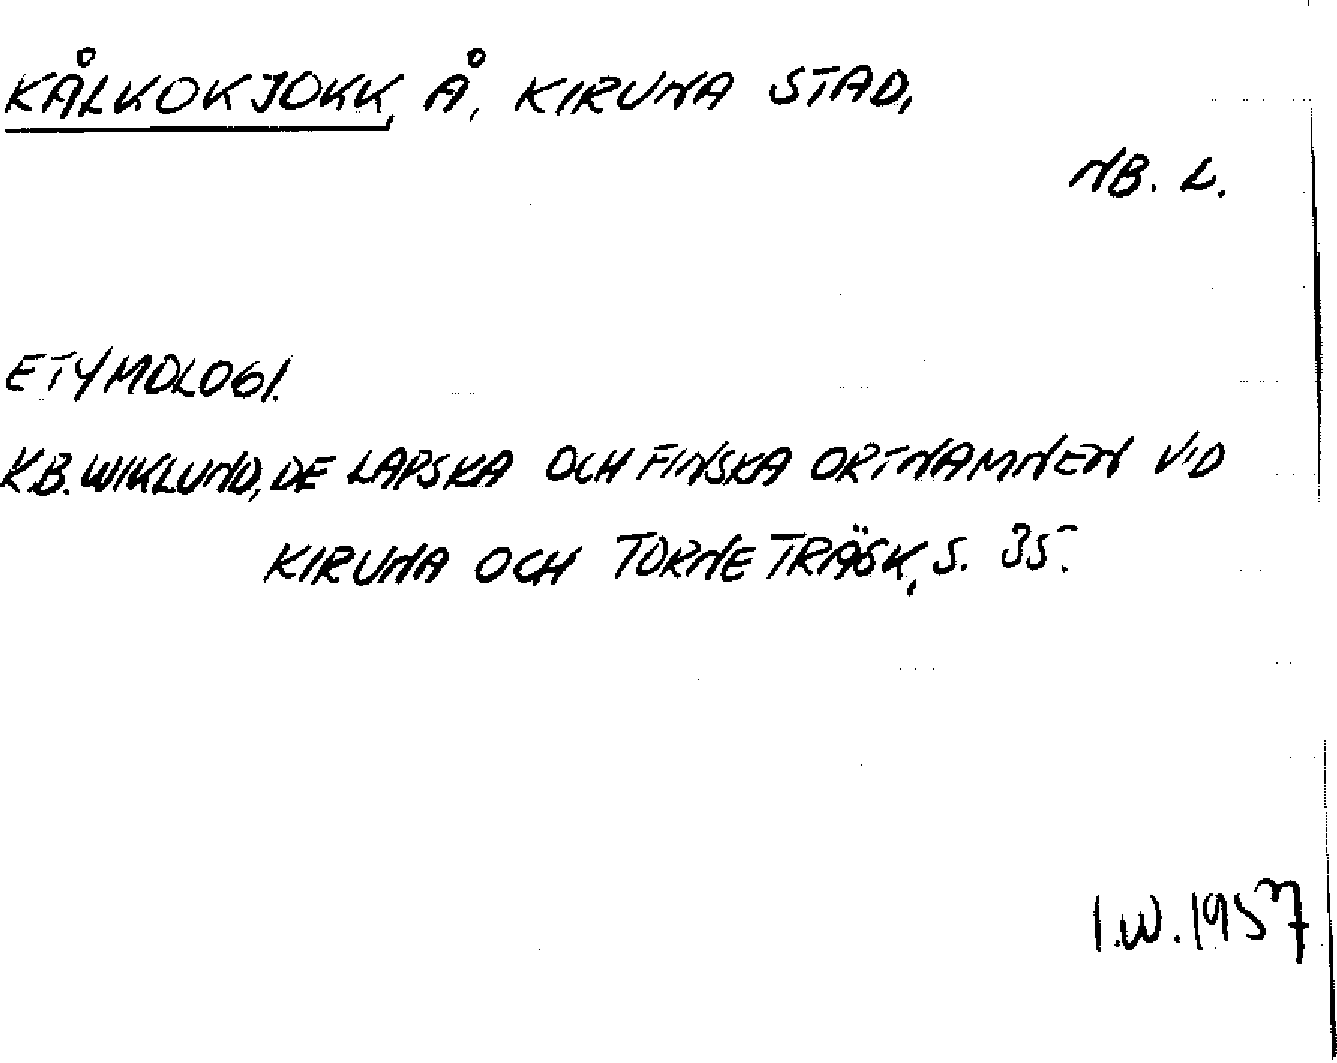 KÅLKOKJOKK, Å, KIRUNA STAD,
NB. L.
ETYMOLOGI.
K.B. WIKLUND, DE LAPSKA OCH FINSKA ORTNAMNEN VID
KIRUNA OCH TORNETRÄSK, S. 35.
I.W. 1957